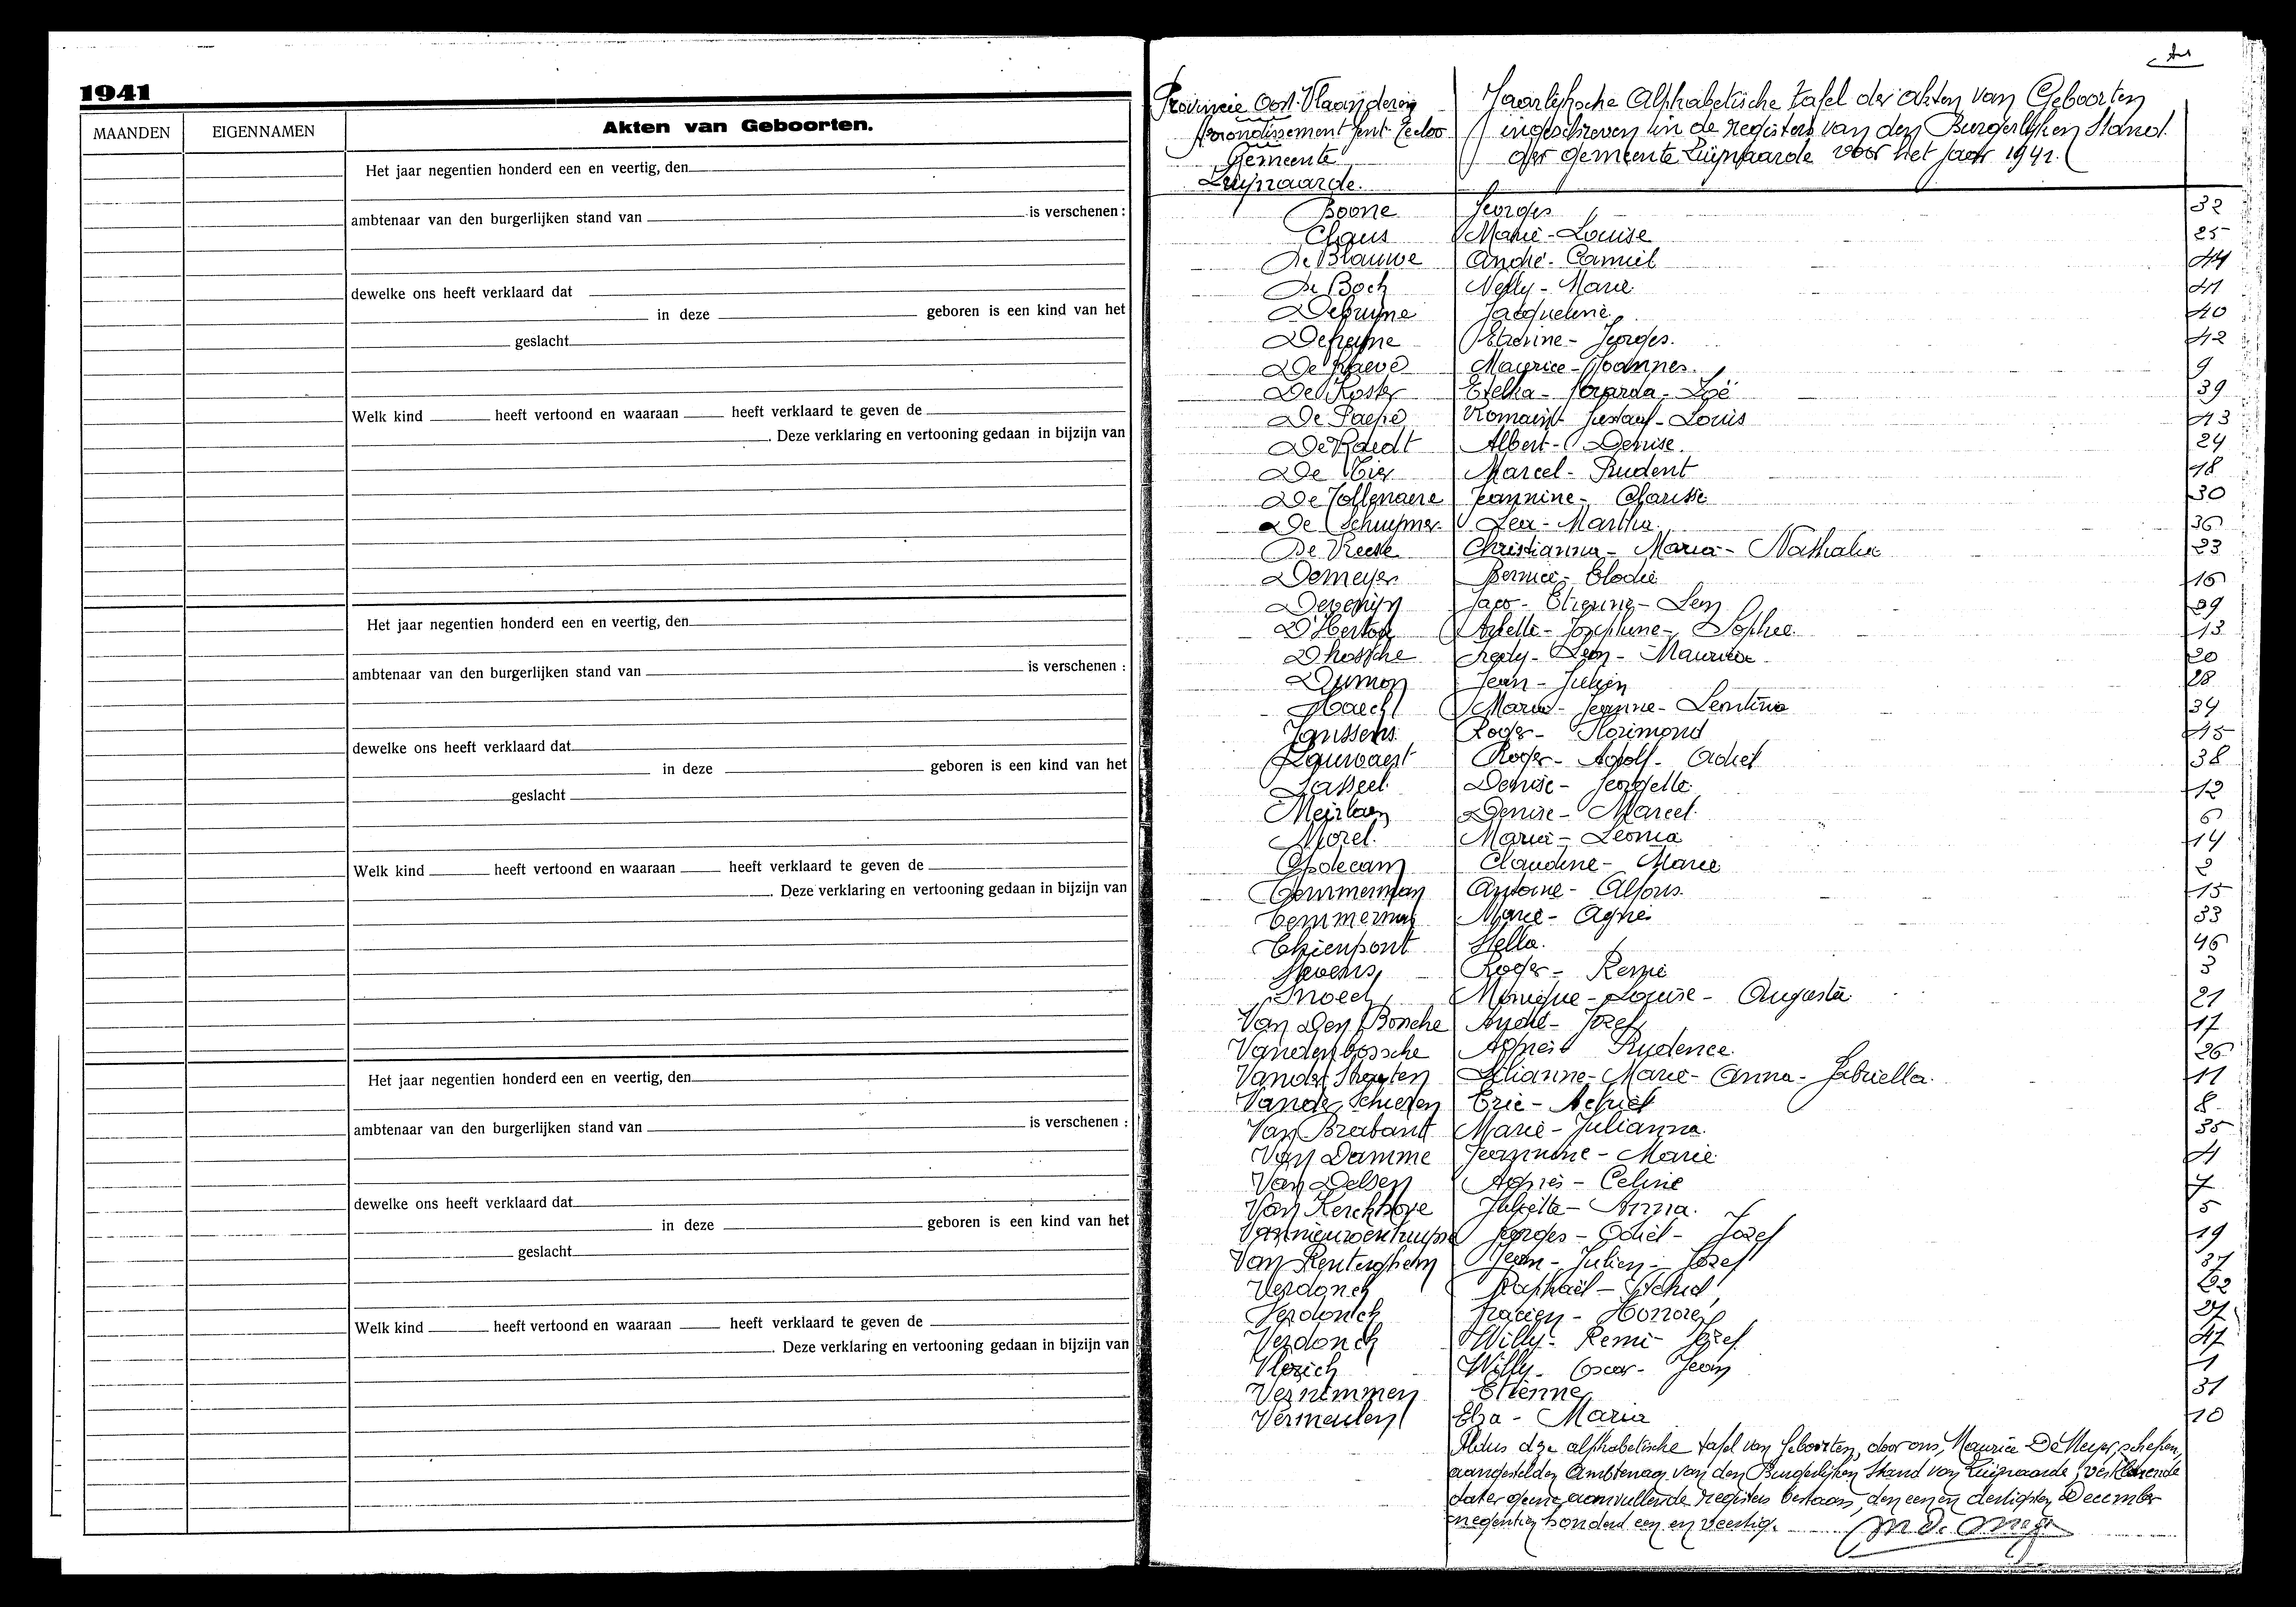 1941
MAANDEN EIGENNAMEN Akten van Geboorten.
Het jaar negentien honderd een en veertig, den
ambtenaar van den burgerlijken stand van is verschenen :
dewelke ons heeft verklaard dat
in deze geboren is een kind van het
geslacht
Welk kind heeft vertoond en waaraan heeft verklaard te geven de
. Deze verklaring en vertooning gedaan in bijzijn van
Het jaar negentien honderd een en veertig, den
ambtenaar van den burgerlijken stand van is verschenen :
dewelke ons heeft verklaard dat
in deze geboren is een kind van het
geslacht
Welk kind heeft vertoond en waaraan heeft verklaard te geven de
. Deze verklaring en vertooning gedaan in bijzijn van
Het jaar negentien honderd een en veertig, den
ambtenaar van den burgerlijken stand van is verschenen :
dewelke ons heeft verklaard dat
in deze geboren is een kind van het
geslacht
Welk kind heeft vertoond en waaraan heeft verklaard te geven de
. Deze verklaring en vertooning gedaan in bijzijn van
Provincie Oost-Vlaanderen
Arrondissement Gent-Eecloo
Gemeente
Zwijnaarde.
Jaarlijksche Alphabetische tafel der akten van Geboorten
ingeschreven in de registers van den Burgerlijken Stand
der gemeente Zwijnaarde voor het jaar 1941.
Boone Georges 32
Claus Marie-Louise 25
De Blauwe André-Camiel 44
De Bock Nelly-Marie 41
Debruyne Jacqueline 40
Georges. 42
Maurice-Joannes. 9
De Koster Gerarda-Zoë 39
De Paepe Romain-Gustaaf-Louis 43
De Raedt Albert-Denise. 24
De Tier Marcel-Prudent 18
De Tollenaere Jeannine-Clarisse 30
De Schuymer Lea-Martha. 36
De Vreese Christianna-Maria-Nathalie 23
Demeyer Elodie 16
Devenijn Jaco-Etienne-Leon 29
D'Hertog Arlette-Josephine-Sophie. 13
Dhossche Fredy-Leon-Maurice 20
Dumon Jean-Julien 28
Haeck Maria-Jeanne-Leontina 34
Janssens Roger-Florimond 45
Lauwaert Roger-Adolf-Achiel 38
Lasseel Denise-Georgette. 12
Meirlaen Denise-Marcel. 6
Morel. Maria-Leonia 14
Opdecam Claudine-Marie 2
Temmerman Antoine-Alfons. 15
Temmerman Marie-Agnes 33
Thienpont Stella. 46
Stevens Roger-Remie 3
Snoeck Monique-Louise-Augusta 21
Van Den Bossche André-Jozef 17
Vandenbossche Agnes Prudence. 26
Vander Straeten Lilianne-Marie-Anna-Gabriella. 11
Vander Schueren Eric-Achiel 8
Van Brabant Marie-Julianna. 35
Van Damme Jeannine-Marie 4
Van Delsen Agnes-Celine 7
Van Kerckhove Juliette-Anna. 5
Vannieuwenhuyse Georges-Odiel-Jozef 19
Van Renterghem Jean-Julien-Jozef 37
Verdonck Raphaël-Achiel 22
Verdonck Gratien-Honoré 27
Verdonck Willy-Remi-Jozef 47
Vlerick Willy-Oscar-Jean 1
Vernimmen Etienne 31
Vermeulen Elza-Maria 10
Aldus deze alphabetische tafel van Geboorten, door ons, Maurice De Meyer, schepen,
aangestelden Ambtenaar van den Burgerlijken Stand van Zwijnaarde, verklarende
dat er geene aanvullende registers bestaan, den een en dertigsten December
negentien honderd een en veertig.